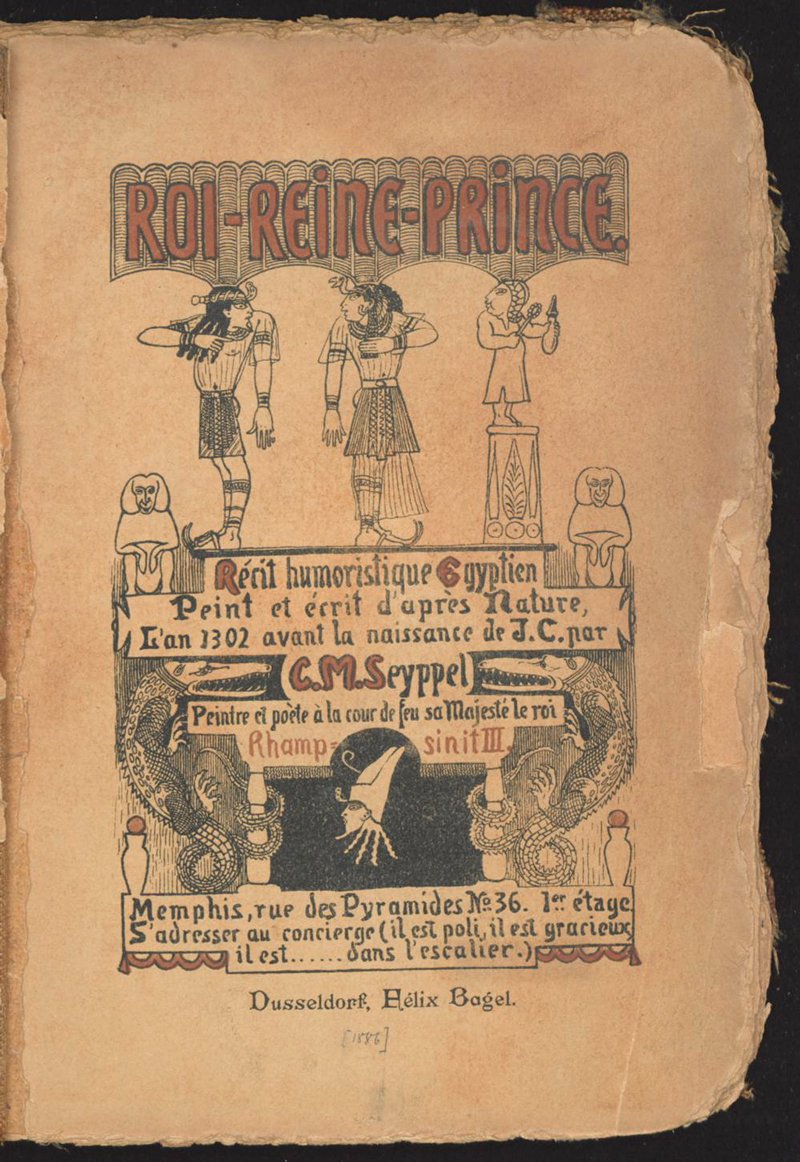 ROI-REINE-PRINCE.
Récit humoristique Egyptien
Peint et écrit d'après Nature,
L'an 1302 avant la naissance de J.C. par
C.M.Seyppel
Peintre et poète à la cour de feu sa Majesté le roi
Rhamp=sinit III.
Memphis, rue des Pyramides No 36. 1er étage
S'adresser au concierge (il est poli, il est gracieux,
il est......dans l'escalier.)
Dusseldorf, Félix Bagel.
[1886]